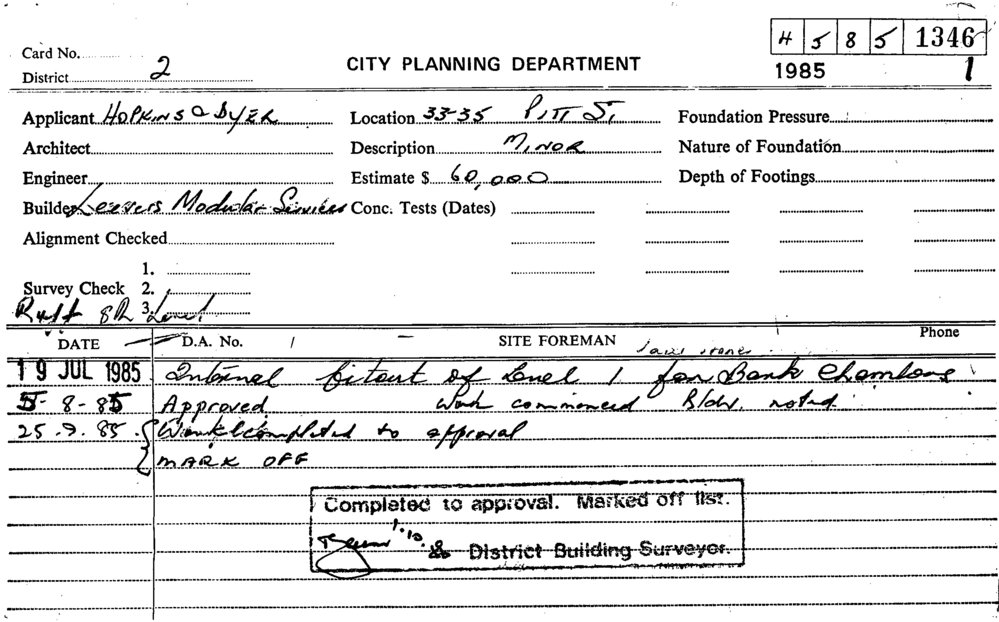 H 5 8 5 1346
Card No.
District 2
CITY PLANNING DEPARTMENT
1985 1
Applicant HOPKINS & DYER
Location 33-35 PITT ST.
Foundation Pressure
Architect
Description MINOR
Nature of Foundation
Engineer
Estimate $ 60,000
Depth of Footings
Builder Leevers Modular Services
Conc. Tests (Dates)
Alignment Checked
1.
Survey Check 2.
3.
8th Level
DATE D.A. No. SITE FOREMAN Phone
19 JUL 1985 Internal fitout of Level 1 for Bank Chambers
5- 8-85 Approved. Work commenced Bldr. noted.
25.9.85. Work completed to approval
MARK OFF
Completed to approval. Marked off list.
1.10.
District Building Surveyor.